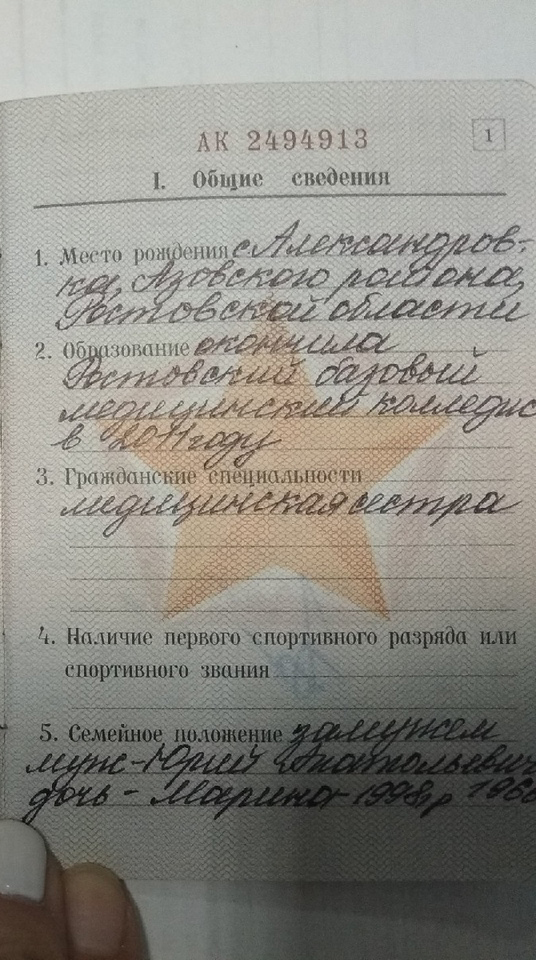 АК 2494913
1
I. Общие сведения
1. Место рождения с. Александров-
ка, Азовского района,
Ростовской области
2. Образование окончила
Ростовский базовый
медицинский колледж
в 2011 году
3. Гражданские специальности
медицинская сестра
4. Наличие первого спортивного разряда или
спортивного звания
5. Семейное положение замужем
муж - Юрий Анатольевич
дочь - Марина 1998г.р